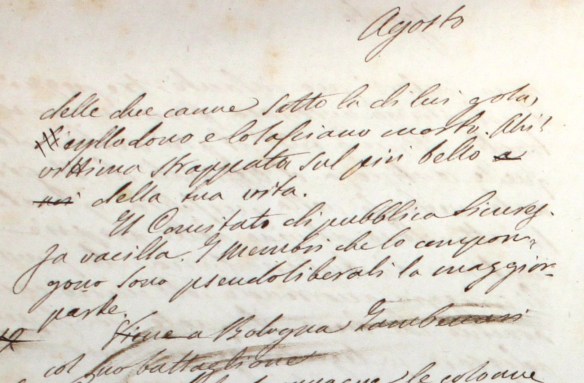 Agosto
delle due canne sotto la di lui gola,
e lo lasciano morto. Ahi!
vittima strappata sul più bello a
della sua vita.
Il Comitato di pubblica Sicurez-
za vacilla. I membri che lo compon-
gono sono pseudoliberali la maggior
parte.
Viene a Bologna Zambeccari
col suo battaglione
le colonne